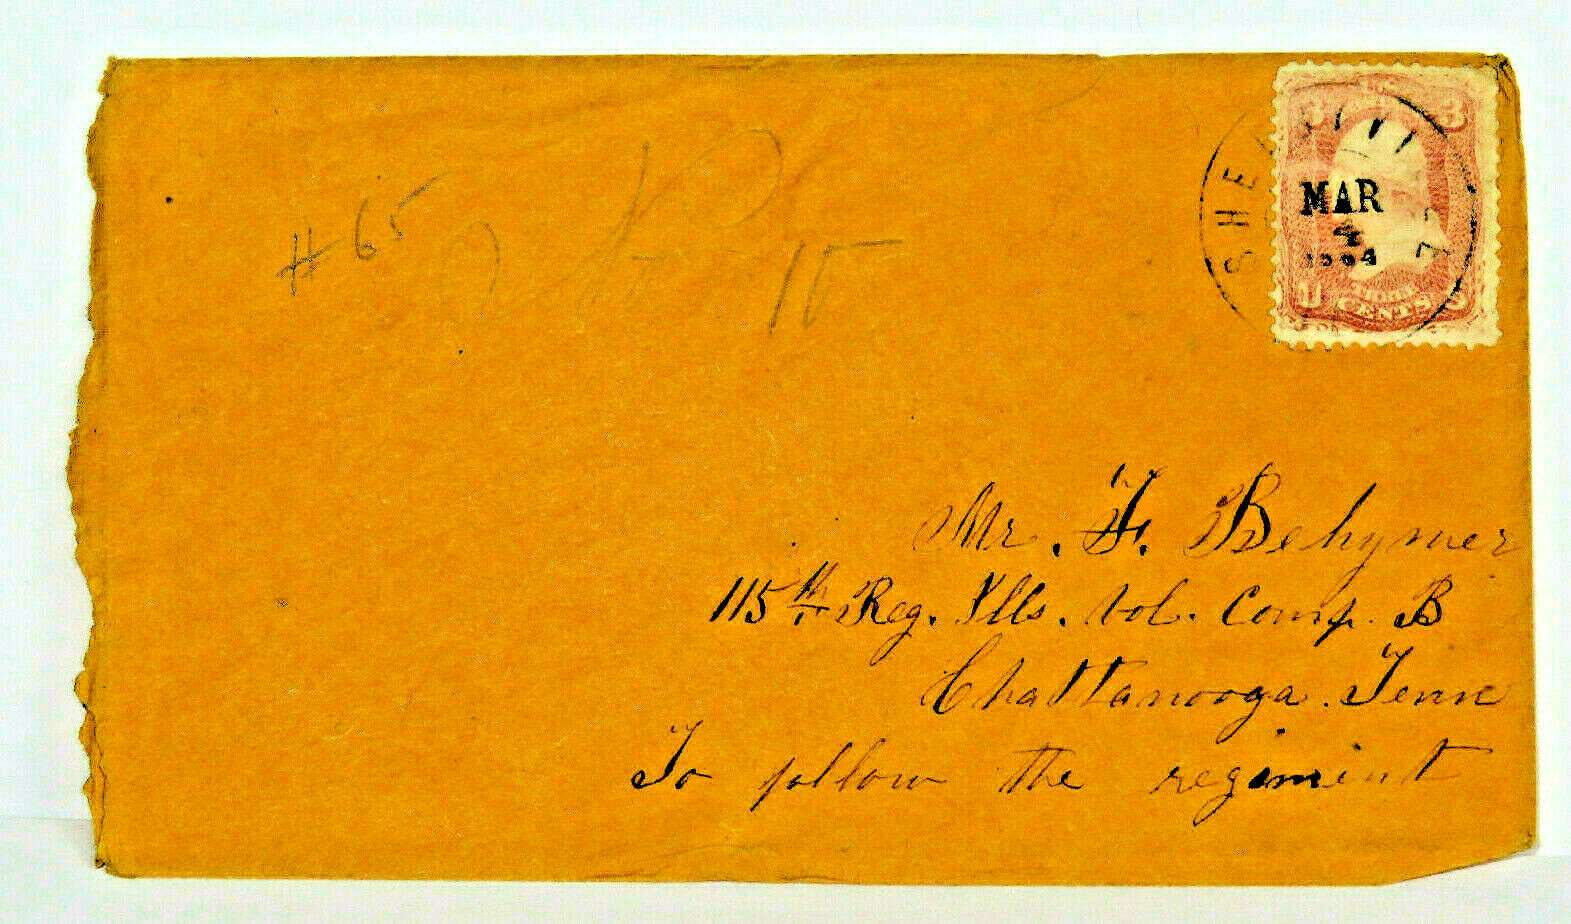 # 65
15
3 3
SHE
MAR
4
1864
U S
CENTS
Mr. F. Behymer
115th Reg. Ills. Vol. Comp. B
Chattanooga. Tenn
To follow the regimint